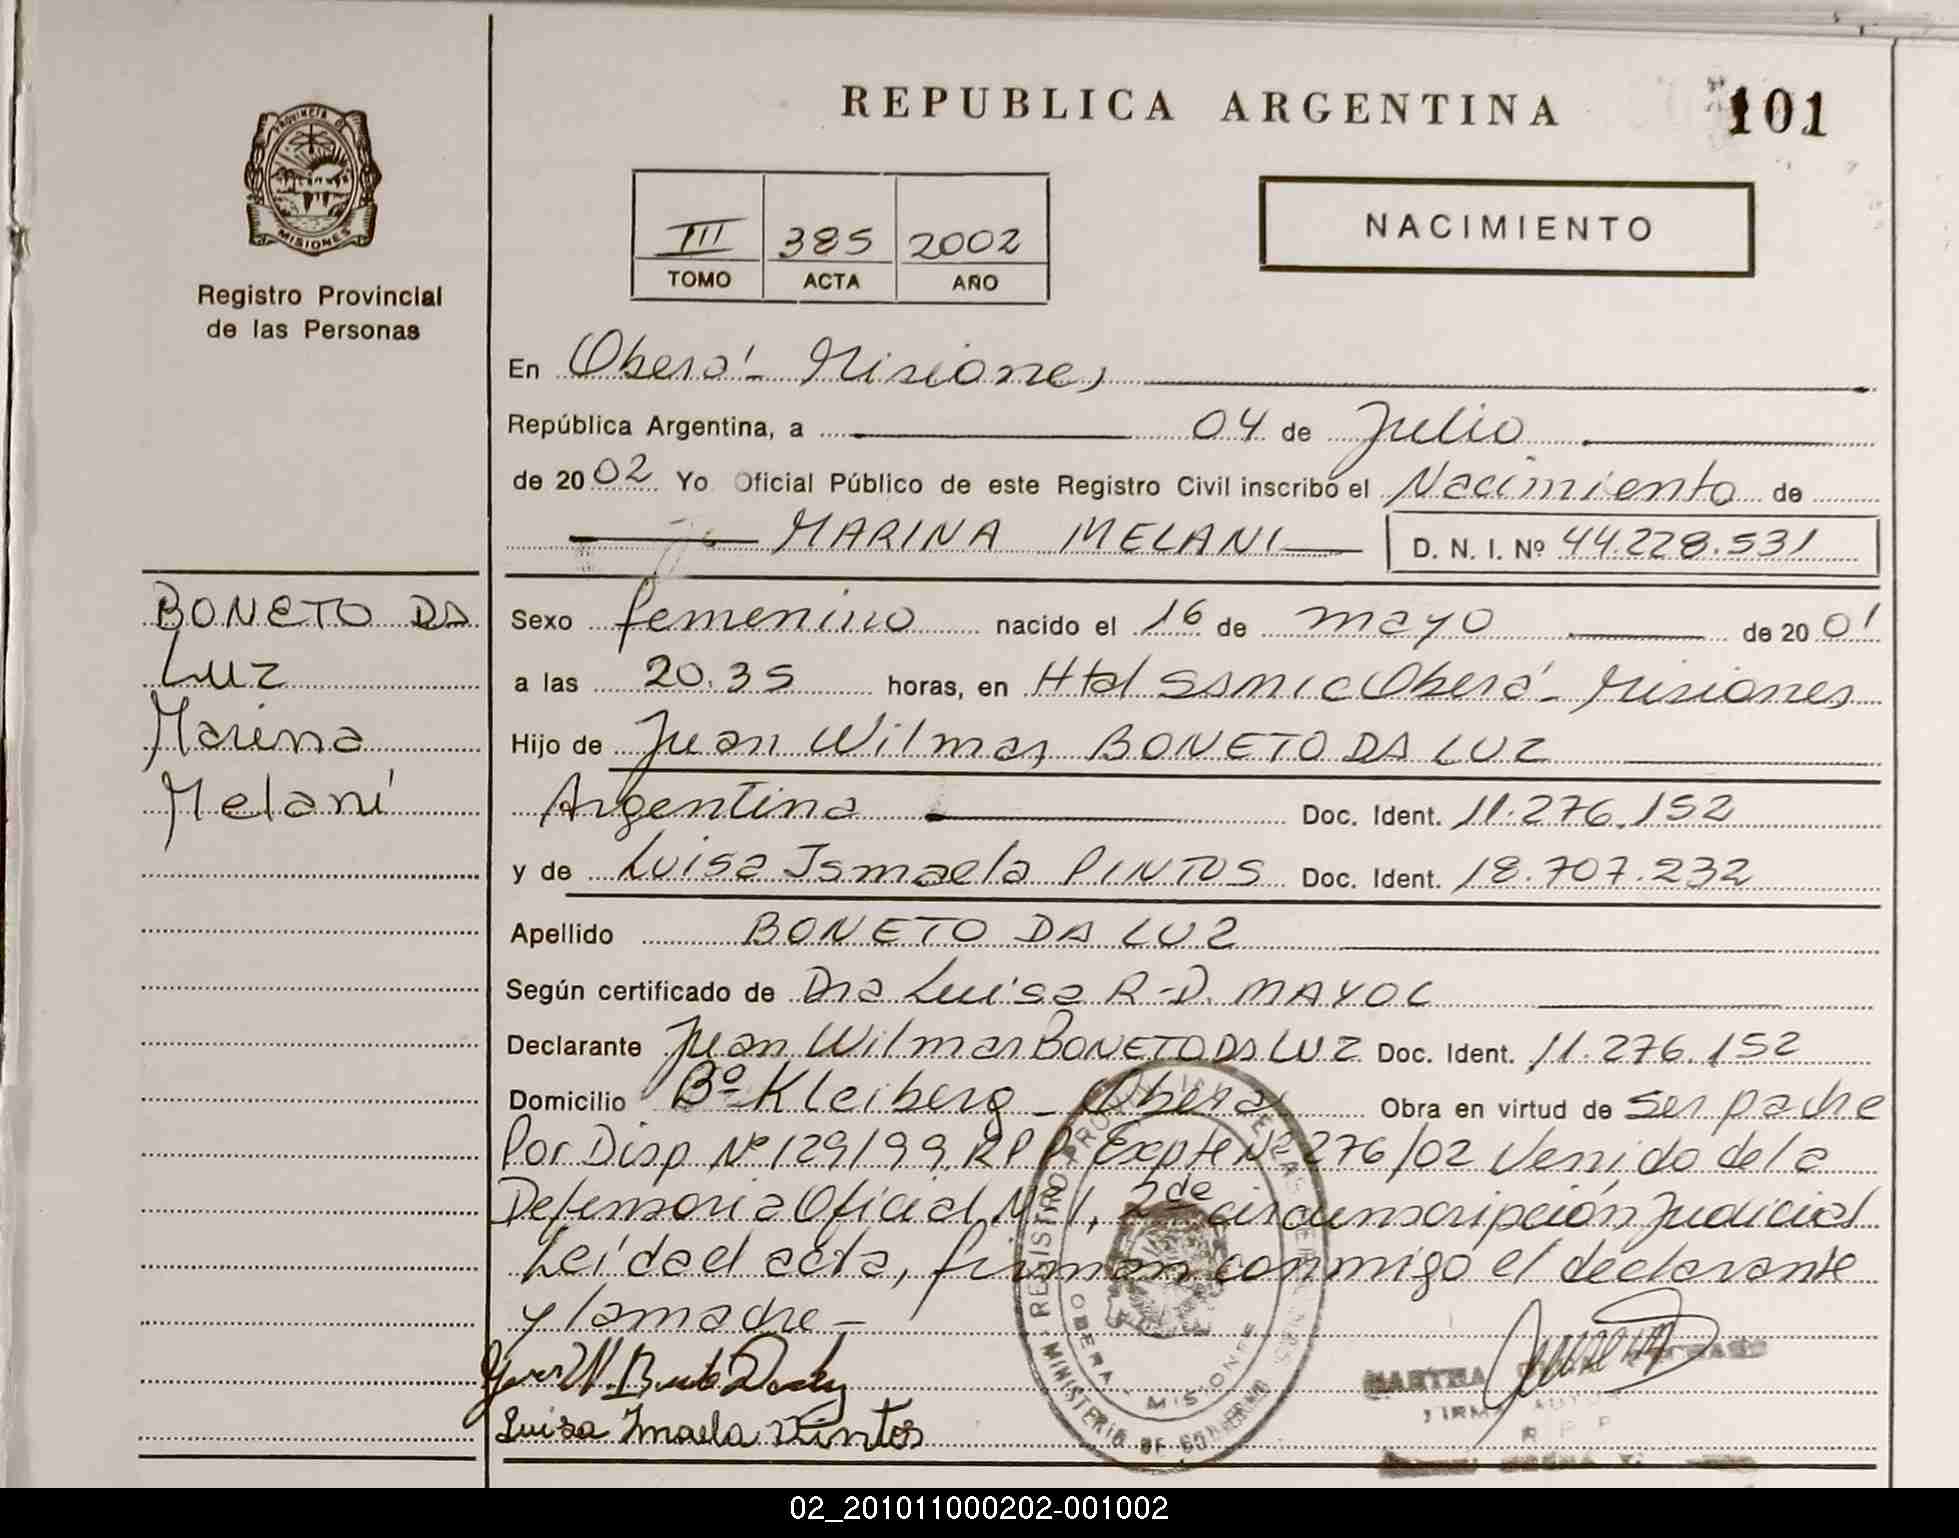 REPUBLICA ARGENTINA
101
PROVINCIA DE
MISIONES
Registro Provincial
de las Personas
III 385 2002
TOMO ACTA AÑO
NACIMIENTO
En Oberá - Misiones
República Argentina, a 04 de Julio
de 2002 Yo Oficial Público de este Registro Civil inscribo el Nacimiento de
MARINA MELANI D. N. I. Nº 44.228.531
BONETO DA
Luz
Marina
Melaní
Sexo femenino nacido el 16 de mayo de 2001
a las 20.35 horas, en Htal SSMIC Oberá - Misiones
Hijo de Juan Wilmar BONETO DA LUZ
Argentina Doc. Ident. 11.276.152
y de Luisa Ismaela PINTOS Doc. Ident. 18.707.232
Apellido BONETO DA LUZ
Según certificado de Dra Luisa R-D. MAYOL
Declarante Juan Wilmar BONETO DA LUZ Doc. Ident. 11.276.152
Domicilio Bº Kleiberg - Oberá Obra en virtud de ser padre
Por Disp Nº 129/99 RPP Expte Nº 276/02 Venido de la
Defensoria Oficial Nº 1, 2da circunscripción Judicial
Leída el acta, firman conmigo el declarante
y la madre -
Luisa Imaela Pintos
REGISTRO PROVINCIAL DE LAS PERSONAS
OBERA - MISIONES
MINISTERIO DE GOBIERNO
MARTHA
FIRMA
R P P
02_201011000202-001002